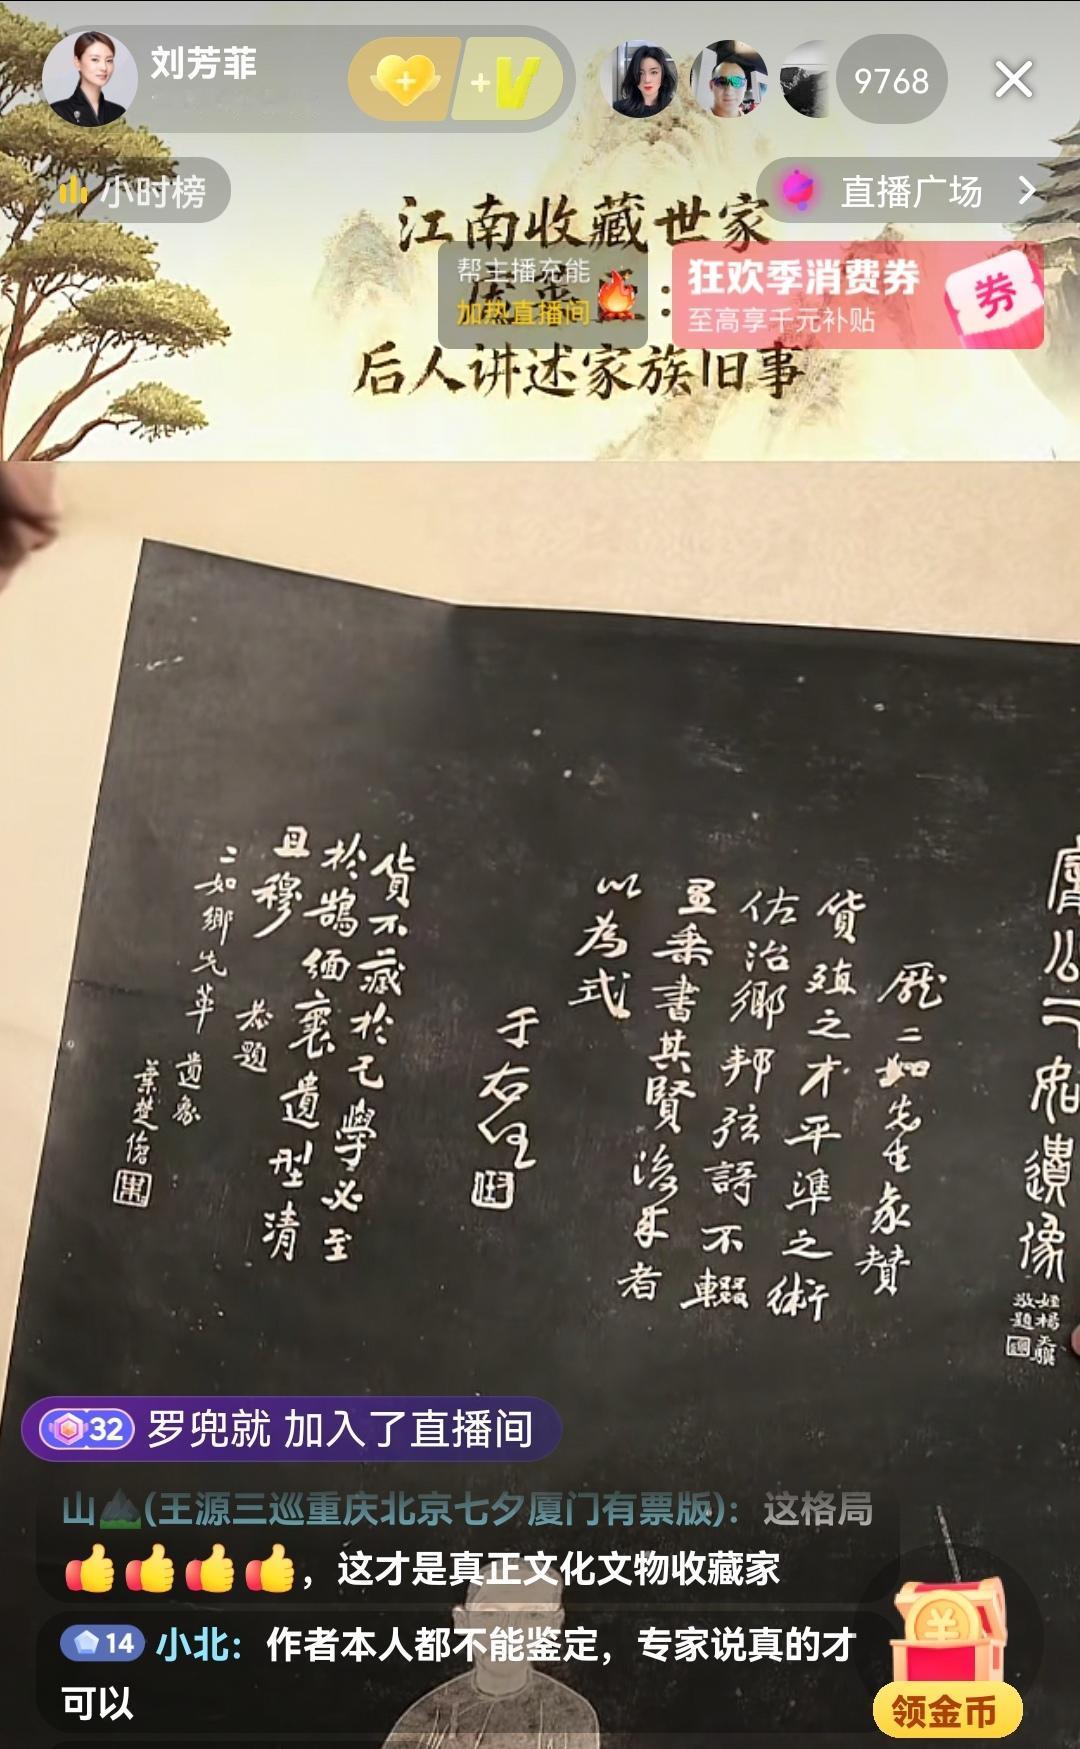 刘芳菲
9768
小时榜
直播广场
江南收藏世家
帮主播充能
加热直播间
狂欢季消费券
至高享千元补贴
券
后人讲述家族旧事
二如遺像
敬題
龐二如先生象贊
貨殖之才平準之術
佐治鄉邦弦誦不輟
里乘書其賢後來者
以為式
于右任
貨不藏於己學必至
於鵠緬襄遺型清
且穆
二如鄉先輩
遺象
恭題
葉楚傖
32 罗兜就 加入了直播间
山(王源三巡重庆北京七夕厦门有票版)：这格局
，这才是真正文化文物收藏家
14 小北：作者本人都不能鉴定，专家说真的才
可以
领金币